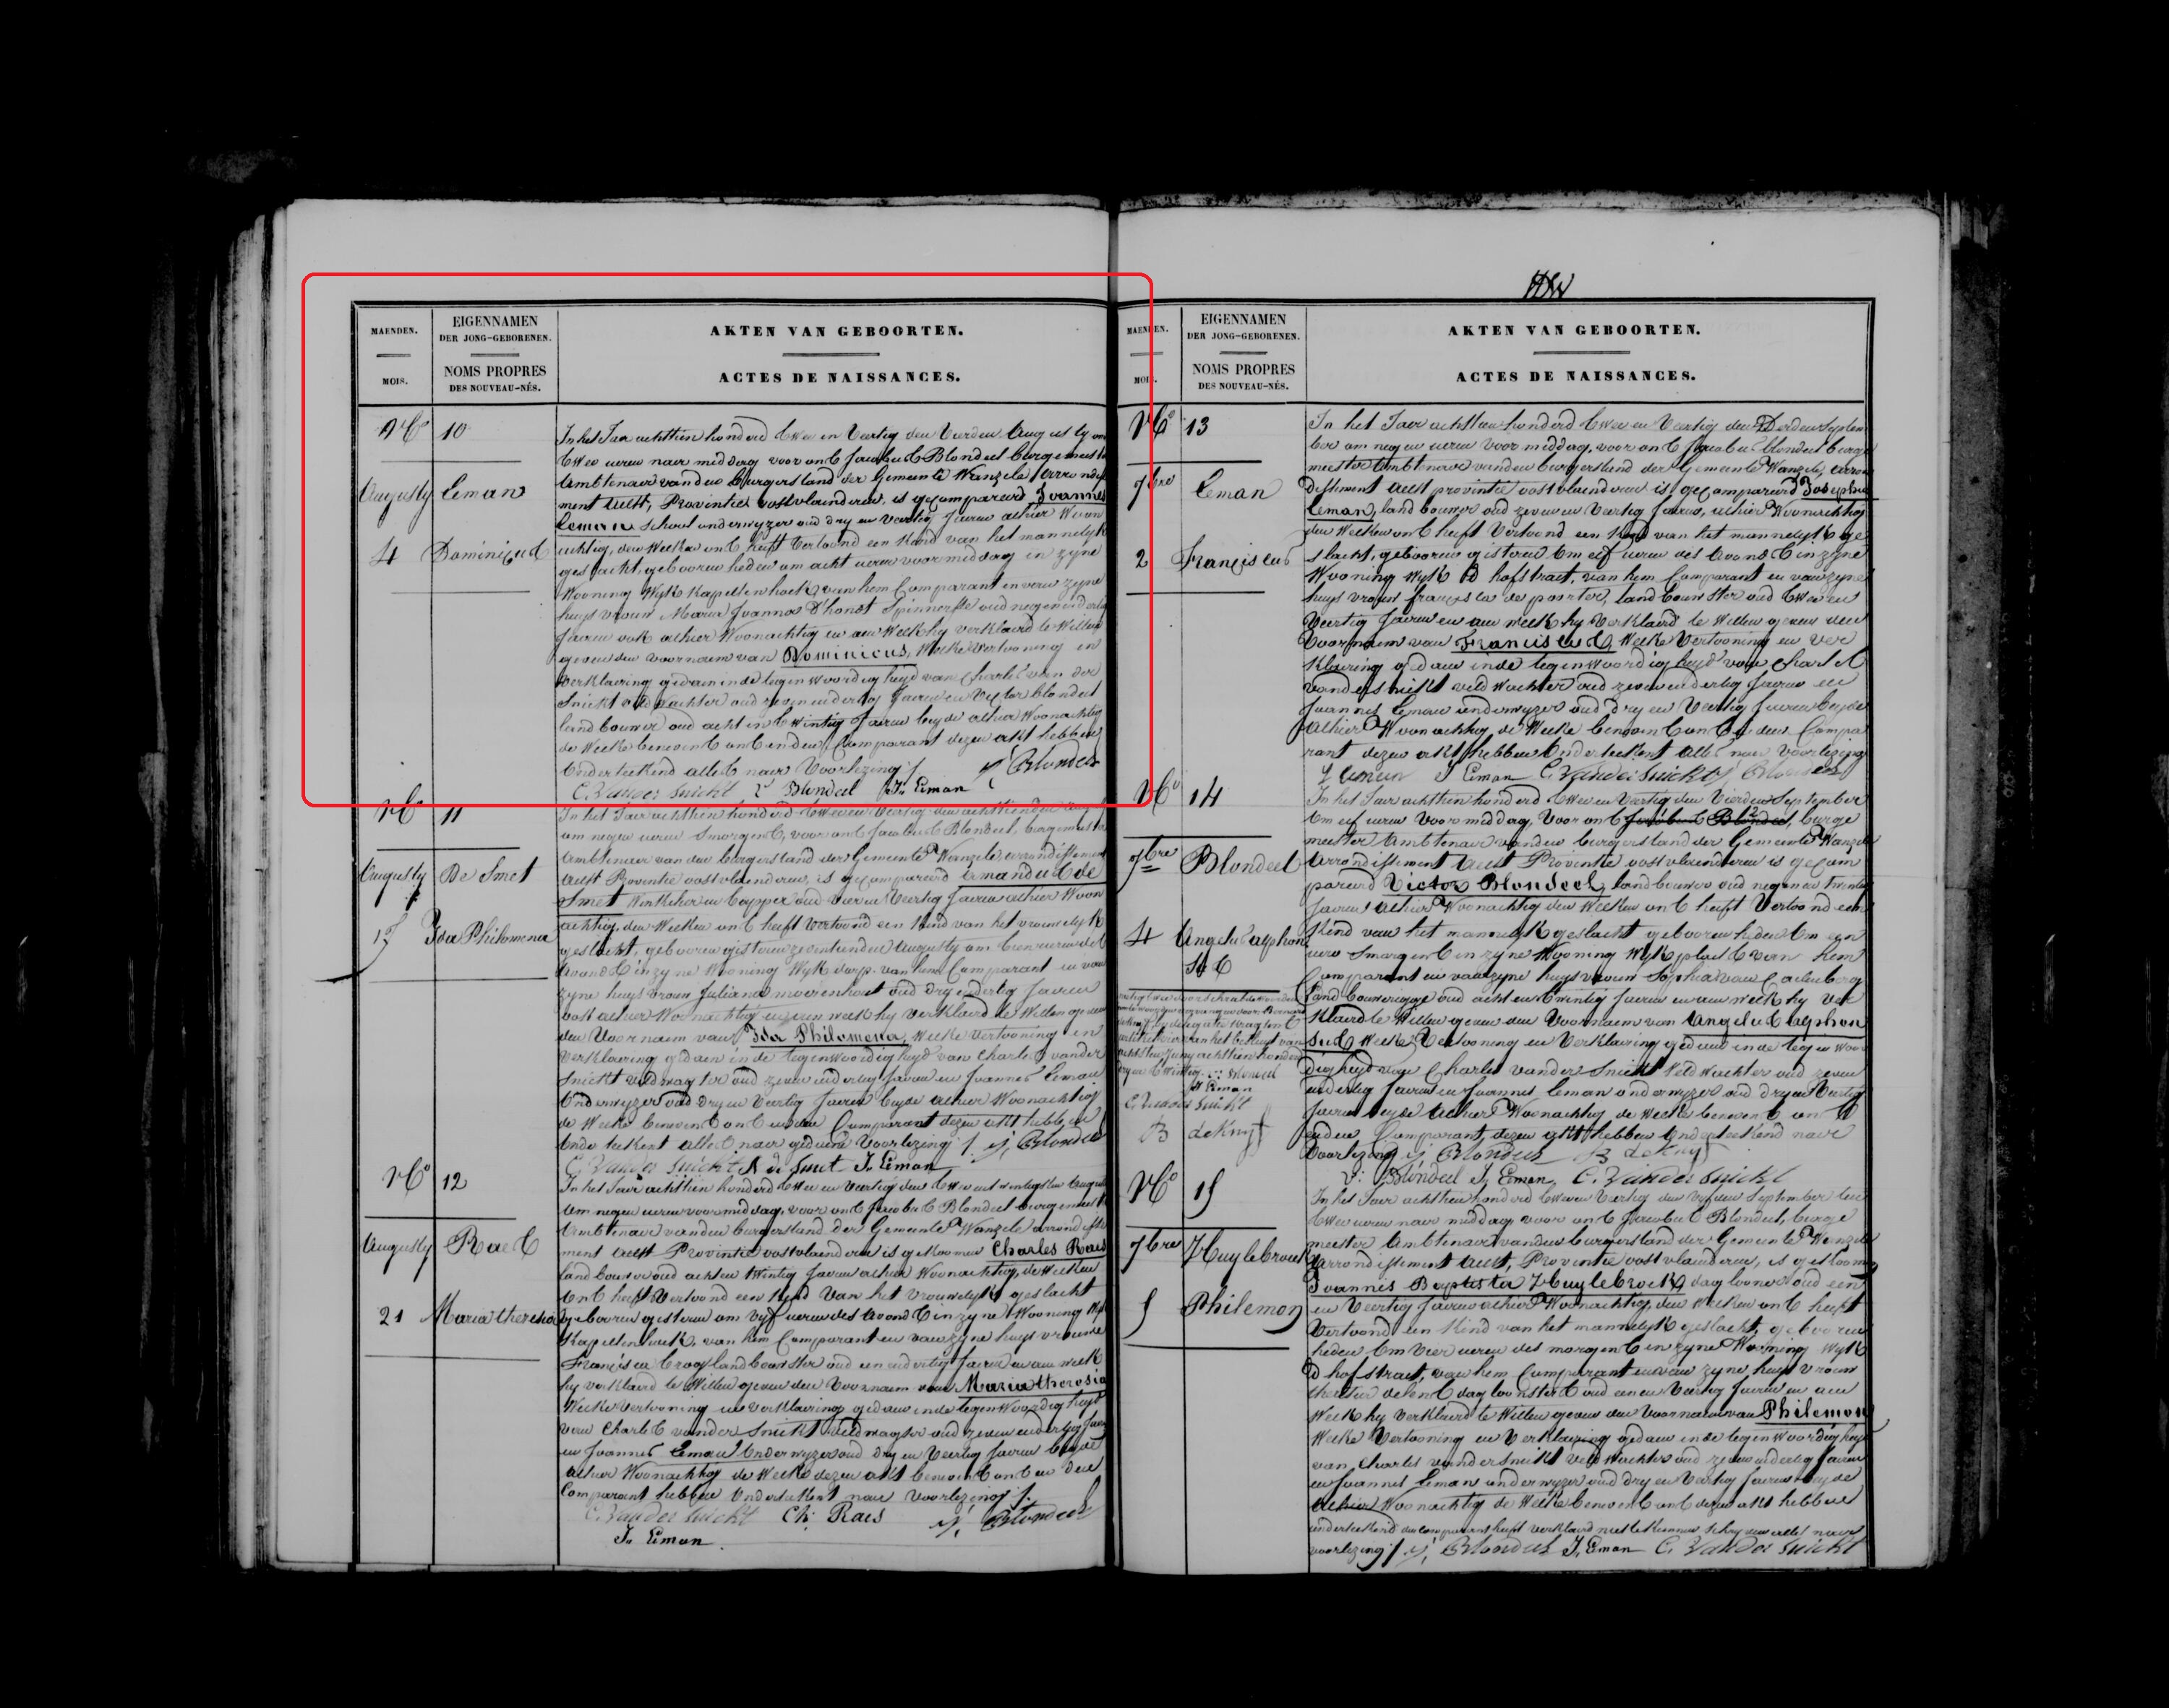 MAENDEN.
MOIS.
EIGENNAMEN
DER JONG-GEBORENEN.
NOMS PROPRES
DES NOUVEAU-NÉS.
AKTEN VAN GEBOORTEN.
ACTES DE NAISSANCES.
No 10
Augusty Eeman
4 Dominicus
In het Jaer achttien honderd twee en Veertig den Vierden Augusty om
twee uren naer middag voor ons Jacobus Blondeel burgemeester
Ambtenaer van den burgerstand der Gemeente Wanzele Arrondisse
ment Aelst, Provintie oostvlaenderen, is gecompareerd Joannes
Eeman school onderwyzer oud dry en Veertig Jaeren alhier Woon
achtig, den Welken ons heeft Vertoond een Kind van het mannelyk
geslacht, gebooren heden om acht uren voormiddag in zyne
Wooning Wyk Kapellenhoek, van hem Comparant en van zyne
huysvrouw Maria Joanna D'hondt Spinnersse oud negenendertig
Jaeren ook alhier Woonachtig en aen Welk hy verklaerd te Willen
geven den voornaem van Dominicus, Welke Vertooning en
verklaering gedaen in de tegenwoordigheyd van Charles van der
Snickt veldwachter oud zevenendertig Jaeren en Victor Blondeel
landbouwer oud acht en twintig Jaeren beyde alhier Woonachtig
de Welke benevens ons en den Comparant dezen akt hebben
Onderteekend alles naer Voorlezing
J. Blondeel
C. Vander Snickt V. Blondeel J. Eeman
No 11
Augusty De Smet
17 Ida Philomena
In het Jaer achttien honderd twee en Veertig den achttienden Augusty
om negen uren Smorgens, voor ons Jacobus Blondeel, burgemeester
Ambtenaer van den burgerstand der Gemeente Wanzele arrondissement
Aelst Provintie oostvlaenderen, is gecompareerd Amandus De
Smet oud Vier en Veertig Jaeren alhier Woon
achtig, den Welken ons heeft Vertoond een Kind van het vrouwelyk
geslacht, gebooren gisteren zeventienden Augusty om tien uren des
Avonds in zyne Wooning Wyk dorp van hem Comparant en van
zyne huysvrouw Juliana moerenhout oud dry en dertig Jaeren
ook alhier Woonachtig en aen welk hy verklaerd te Willen geven
den Voornaem van Ida Philomena, Welke Vertooning en
verklaering gedaen in de tegenwoordigheyd van Charles vander
Snickt veldwagter oud zeven en dertig Jaeren en Joannes Eeman
Onderwyzer oud dry en Veertig Jaeren beyde alhier Woonachtig
de Welke benevens ons en den Comparant dezen akt hebben
Onderteekent alles naer gedaene Voorlezing J. Blondeel
C. Vander Snickt A De Smet J. Eeman
No 12
Augusty Raes
21 Maria theresia
In het Jaer achttien honderd twee en Veertig den twee en twintigsten Augusty
om negen uren voormiddag, voor ons Jacobus Blondeel burgemeester
Ambtenaer van den burgerstand der Gemeente Wanzele arrondisse
ment Aelst Provintie oostvlaenderen is gekoomen Charles Raes
landbouwer oud acht en twintig Jaeren alhier Woonachtig, de Welken
Ons heeft Vertoond een Kind Van het Vrouwelyk geslacht
gebooren gisteren om vyf uren des Avonds in zyne Wooning Wyk
Kapellenhoek, van hem Comparant en van zyne huysvrouwe
Francisca landbouwster oud een en dertig Jaeren en aen welk
hy verklaerd te Willen geven den Voornaem van Maria theresia
Welke Vertooning en verklaering gedaen in de tegenwoordigheyd
van Charles vander Snickt Veldwagter oud zeven en dertig Jaeren
en Joannes Eeman Onderwyzer oud dry en Veertig Jaeren beyde
alhier Woonachtig de Welke dezen akt benevens ons en den
Comparant hebben Onderteekent naer Voorlezing
C. Vander Snickt Ch: Raes J. Blondeel
J. Eeman
MAENDEN.
MOIS.
EIGENNAMEN
DER JONG-GEBORENEN.
NOMS PROPRES
DES NOUVEAU-NÉS.
AKTEN VAN GEBOORTEN.
ACTES DE NAISSANCES.
No 13
7bre Eeman
2 Franciscus
In het Jaer achttien honderd twee en Veertig den Derden Septem
ber om negen uren Voor middag, voor ons Jacobus Blondeel burge
meester Ambtenaer van den burgerstand der Gemeente Wanzele, arron
dissement Aelst provintie oostvlaenderen is gecompareerd Josephus
Eeman, landbouwer oud zeven en Veertig Jaeren, alhier Woonachtig
den Welken ons heeft Vertoond een Kind van het mannelyk ge
slacht, gebooren gisteren Om elf uren des Avonds in zyne
Wooning Wyk D hofstraet, van hem Comparant en van zyne
huysvrouw Francisca de poorter, landbouwster oud twee en
Veertig Jaeren en aen welk hy Verklaerd te Willen geven den
Voornaem van Franciscus, Welke Vertooning en Ver
klaering gedaen in de tegenwoordigheyd van Charles
vander Snickt veldwachter oud zeven en dertig Jaeren en
Joannes Eeman onderwyzer oud dry en Veertig Jaeren beyde
Alhier Woonachtig, de Welke benevens ons en den Compa
rant dezen akt hebben Onderteekent alles naer Voorlezing
J Eeman J Eeman C. Vander Snickt J. Blondeel
No 14
7bre Blondeel
4 Angelus alphon
sus
In het Jaer achttien honderd twee en Veertig den Vierden September
Om elf uren Voor middag, Voor ons Jacobus Blondeel, burge
meester Ambtenaer van den burgerstand der Gemeente Wanzele
Arrondissement Aelst Provintie oostvlaenderen is gecom
pareerd Victor Blondeel, landbouwer oud negen en twintig
Jaeren alhier Woonachtig den Welken ons heeft Vertoond een
Kind van het mannelyk geslacht gebooren heden Om een
uren Smorgens in zyne Wooning Wyk plaets van hem
Comparant en van zyne huysvrouw Sophia van Caelenberg
Landbouweresse oud acht en twintig Jaeren en aen welk hy ver
klaerd te Willen geven den Voornaem van Angelus alphon
sus Welke Vertooning en Verklaering gedaen in de tegenwoor
digheyd van Charles vander Snickt Veldwachter oud zeven
en dertig Jaeren en Joannes Eeman onderwyzer oud dry en Veertig
Jaeren beyde Alhier Woonachtig de Welke benevens ons
en den Comparant, dezen akt hebben Onderteekend naer
Voorlezing J. Blondeel B de Knyf
V: Blondeel J. Eeman, C. Vander Snickt
V: Blondeel
J. Eeman
C. Vander Snickt
B de Knyf
No 15
7bre Huylebroeck
5 Philemon
In het Jaer achttien honderd twee en Veertig den Vyfden September ten
twee uren naer middag voor ons Jacobus Blondeel, burge
meester Ambtenaer van den burgerstand der Gemeente Wanzele
Arrondissement Aelst, Provintie oostvlaenderen, is gekoomen
Joannis Baptista Huylebroeck, daglooner oud een
en Veertig Jaeren alhier Woonachtig, den Welken ons heeft
Vertoond een Kind van het mannelyk geslacht, gebooren
heden Om Vier uren des morgens in zyne Wooning Wyk
D hofstraet, van hem Comparant en van zyne huysvrouw
dagloonster oud een en Veertig Jaeren en aen
Welk hy Verklaerd te Willen geven den Voornaem van Philemon
Welke Vertooning en Verklaering gedaen in de tegenwoordigheyd
van Charles vander Snickt Veldwachter oud zeven en dertig Jaeren
en Joannes Eeman onderwyzer oud dry en Veertig Jaeren beyde
Alhier Woonachtig de Welke benevens ons dezen akt hebben
onderteekend den Comparant heeft verklaerd niet te kunnen schryven alles naer
voorlezing J. Blondeel J. Eeman C. Vander Snickt